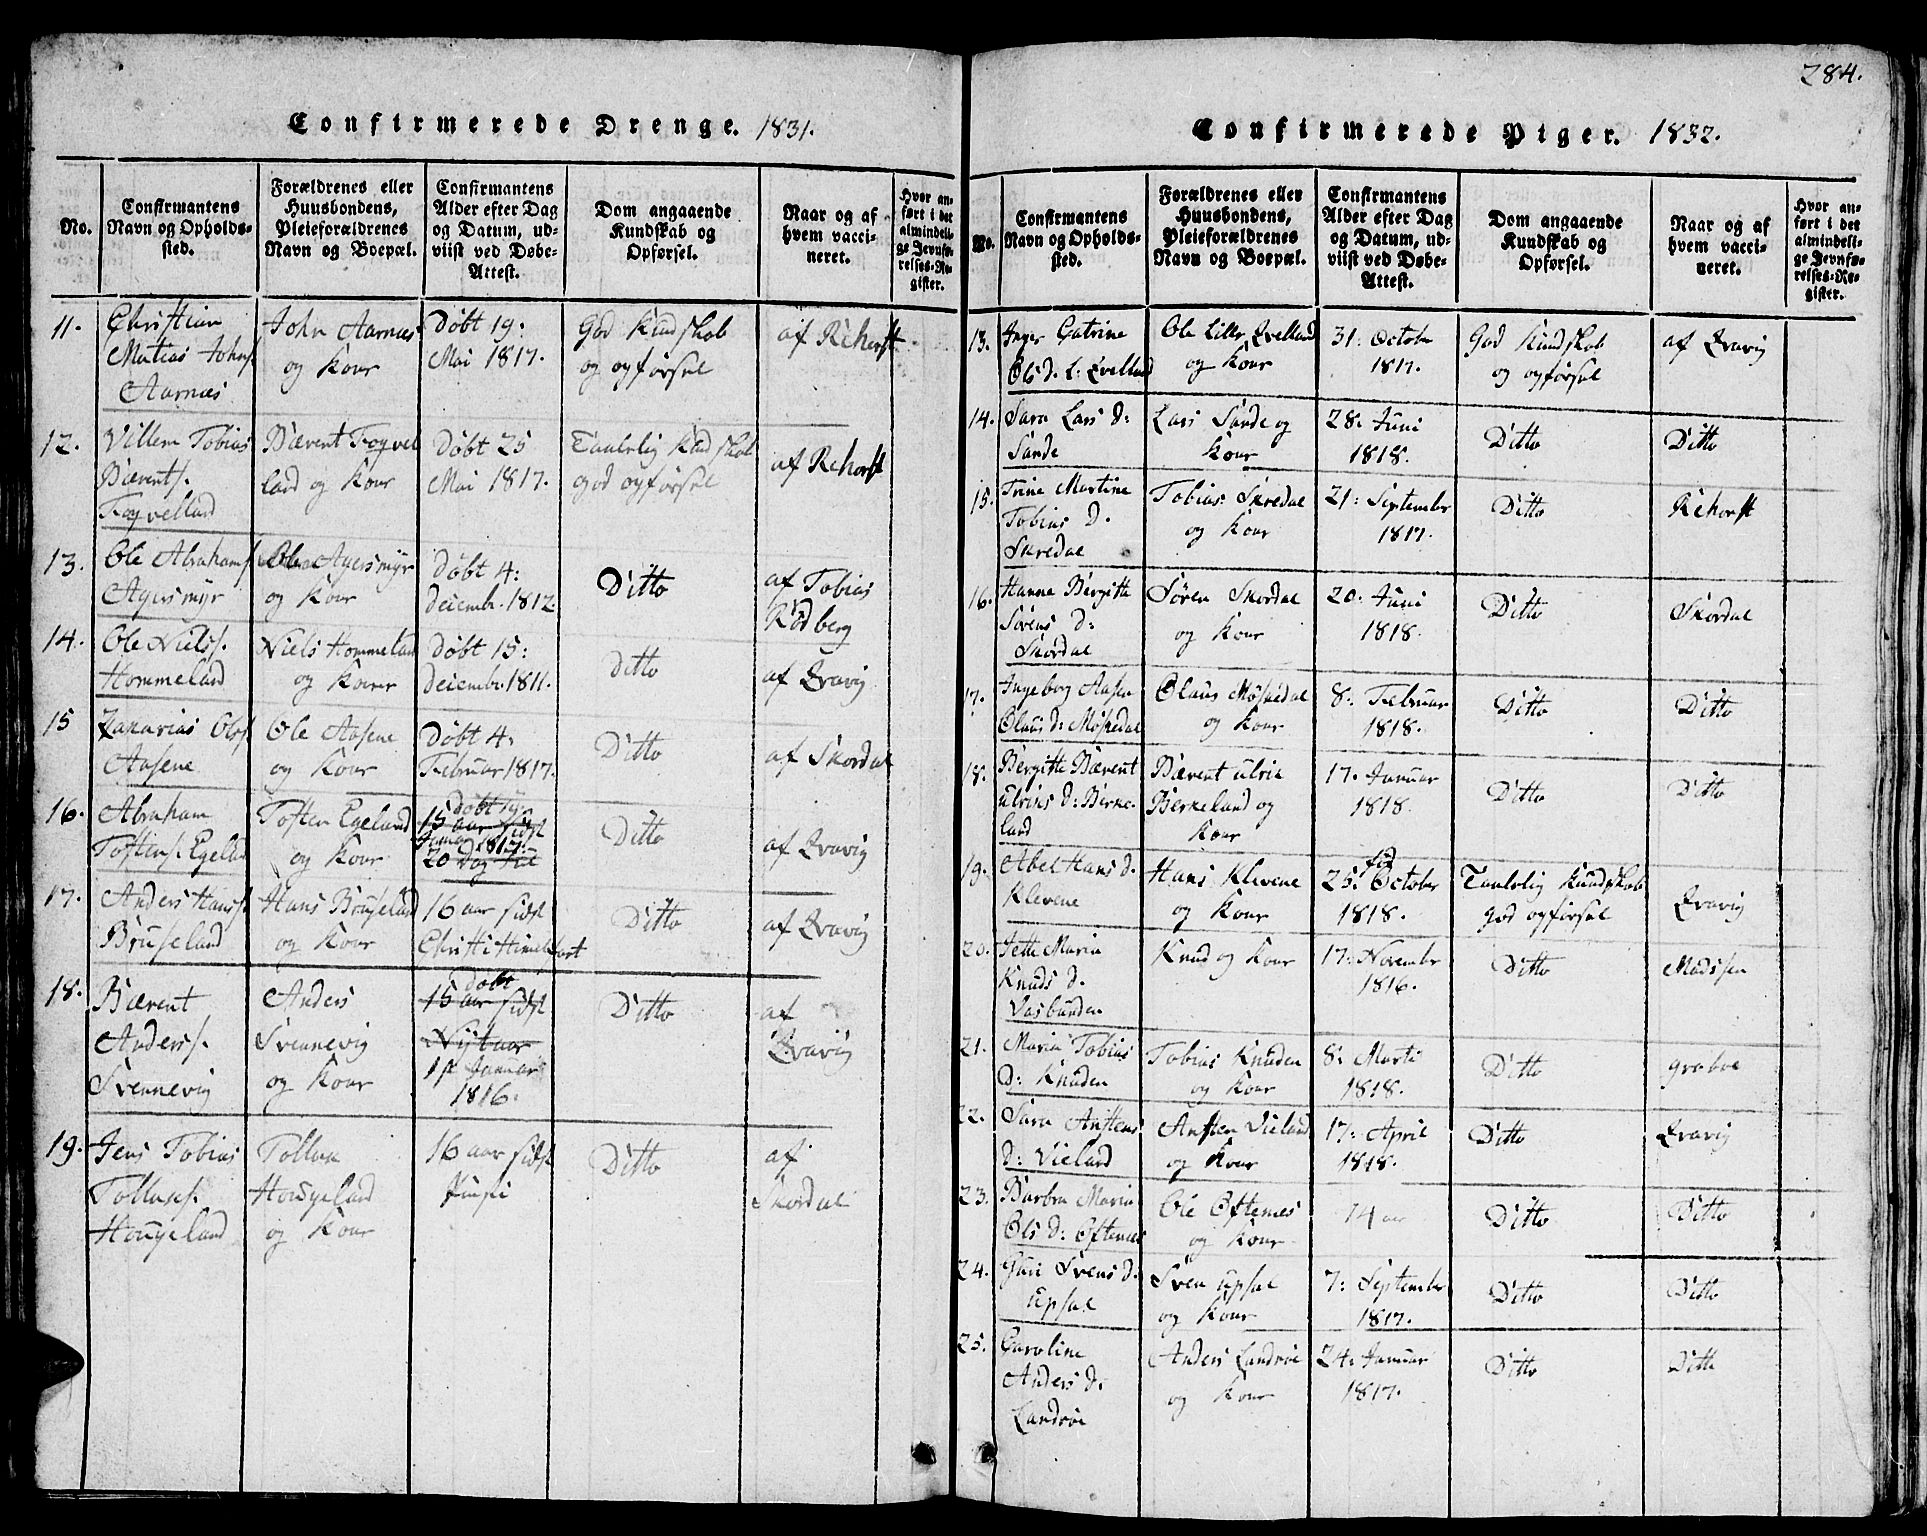 284.
Confirmerede Drenge. 1831.
No.
Confirmantens
Navn og Opholds-
sted.
Forældrenes eller
Huusbondens,
Pleieforældrenes
Navn og Boepæl.
Confirmantens
Alder efter Dag
og Datum, ud-
viist ved Døbe-
Attest.
Dom angaaende
Kundskab og
Opførsel.
Naar og af
hvem vacci-
neret.
Hvor an-
ført i det
almindeli-
ge Jevnfø-
relses-Re-
gister.
11.
Christian
Matias Johns.
Aarnæs
John Aarnæs
og Kone
Døbt 19:
Mai 1817.
God Kundskab
og opførsel
af Rehorst
12.
Villem Tobias
Bærents.
Fogvelland
Bærent Fogvel
land og Kone
Døbt 25
Mai 1817.
Taalelig Kundskab
god opførsel
af Rehorst
13.
Ole Abrahams.
Agersmyr
Ole Agersmyr
og Kone
Døbt 4:
Decembr. 1812
Ditto
af Tobias
Rødberg
14.
Ole Niels.
Hommeland
Niels Hommeland
og Kone
Døbt 15:
Decembr. 1811.
Ditto
af Qvavig
15
Zakarias Ols.
Aasene
Ole Aasene
og Kone
Døbt 4:
Februar 1817.
Ditto
af Skordal
16.
Abraham
Tostens. Egeland
Tosten Egeland
og Kone
Døbt
15 aar sidst
1817.
20 Dag Jul
Ditto
af Qvavig
17.
Anders Hans.
Bruseland
Hans Bruseland
og Kone
16 aar sidst
Christi Himelfart
Ditto
af Qvavig
18.
Bærent
Anders.
Svennevig
Anders
Svennevig
og Kone
Døbt
15 aar sidst
Nytaar
1st Januar
1816.
Ditto
af
Qvavig
19.
Jens Tobias
Tollaks.
Hougeland
Tollak
Hougeland
og Kone
16 aar sidst
Ditto
af
Skordal
Confirmerede Piger. 1832.
No.
Confirmantens
Navn og Opholds-
sted.
Forældrenes eller
Huusbondens,
Pleieforældrenes
Navn og Boepæl.
Confirmantens
Alder efter Dag
og Datum, ud-
viist ved Døbe-
Attest.
Dom angaaende
Kundskab og
Opførsel.
Naar og af
hvem vacci-
neret.
Hvor an-
ført i det
almindeli-
ge Jevnfø-
relses-Re-
gister.
13.
Inger Catrine
Ols D. L: Qvelland
Ole Lille Qvelland
og Kone
31: October
1817.
God Kundskab
og opførsel
af Qvavig
14.
Sara Lars D:
Sande
Lars Sande og
Kone
28: Juni
1818.
Ditto
Ditto
15.
Trine Martine
Tobias D.
Skredal
Tobias Skredal
og Kone
21: September
1817.
Ditto
Rehorst
16.
Hanne Bergitte
Sørens D:
Skordal
Søren Skordal
og Kone
20: Juni
1818.
Ditto
Skordal
17.
Ingeborg Aasen
Olaus D: Møskedal
Olaus Møskedal
og Kone
8: Februar
1818.
Ditto
Ditto
18.
Bergitte Bærent
Ulrics D: Berke-
land
Bærent Ulric
Berkeland og
Kone
17. Januar
1818.
Ditto
Ditto
19.
Abel Hans D.
Klevene
Hans Klevene
og Kone
fød
25. October
1818.
Taalelig Kundskab
god opførsel
Qvavig
20.
Jette Maria
Knuds D.
Vasbunden
Knud og Kone
17: Novembr
1816.
Ditto
Madssen
21.
Maria Tobias
D: Knuden
Tobias Knuden
og Kone
8: Marti
1818.
Ditto
Graboe
22.
Sara Anstens
D: Vieland
Ansten Vieland
og Kone
17: April
1818.
Ditto
Qvavig
23.
Barbra Maria
Ols D: Øftenes
Ole Øftenes
og Kone
14 aar
Ditto
Ditto
24.
Guri Svens D.
Upsal
Sven Upsal
og Kone
7: September
1817.
Ditto
Ditto
25.
Caroline
Anders D.
Landrøe
Anders Landrøe
og Kone
24: Januar
1817.
Ditto
Ditto